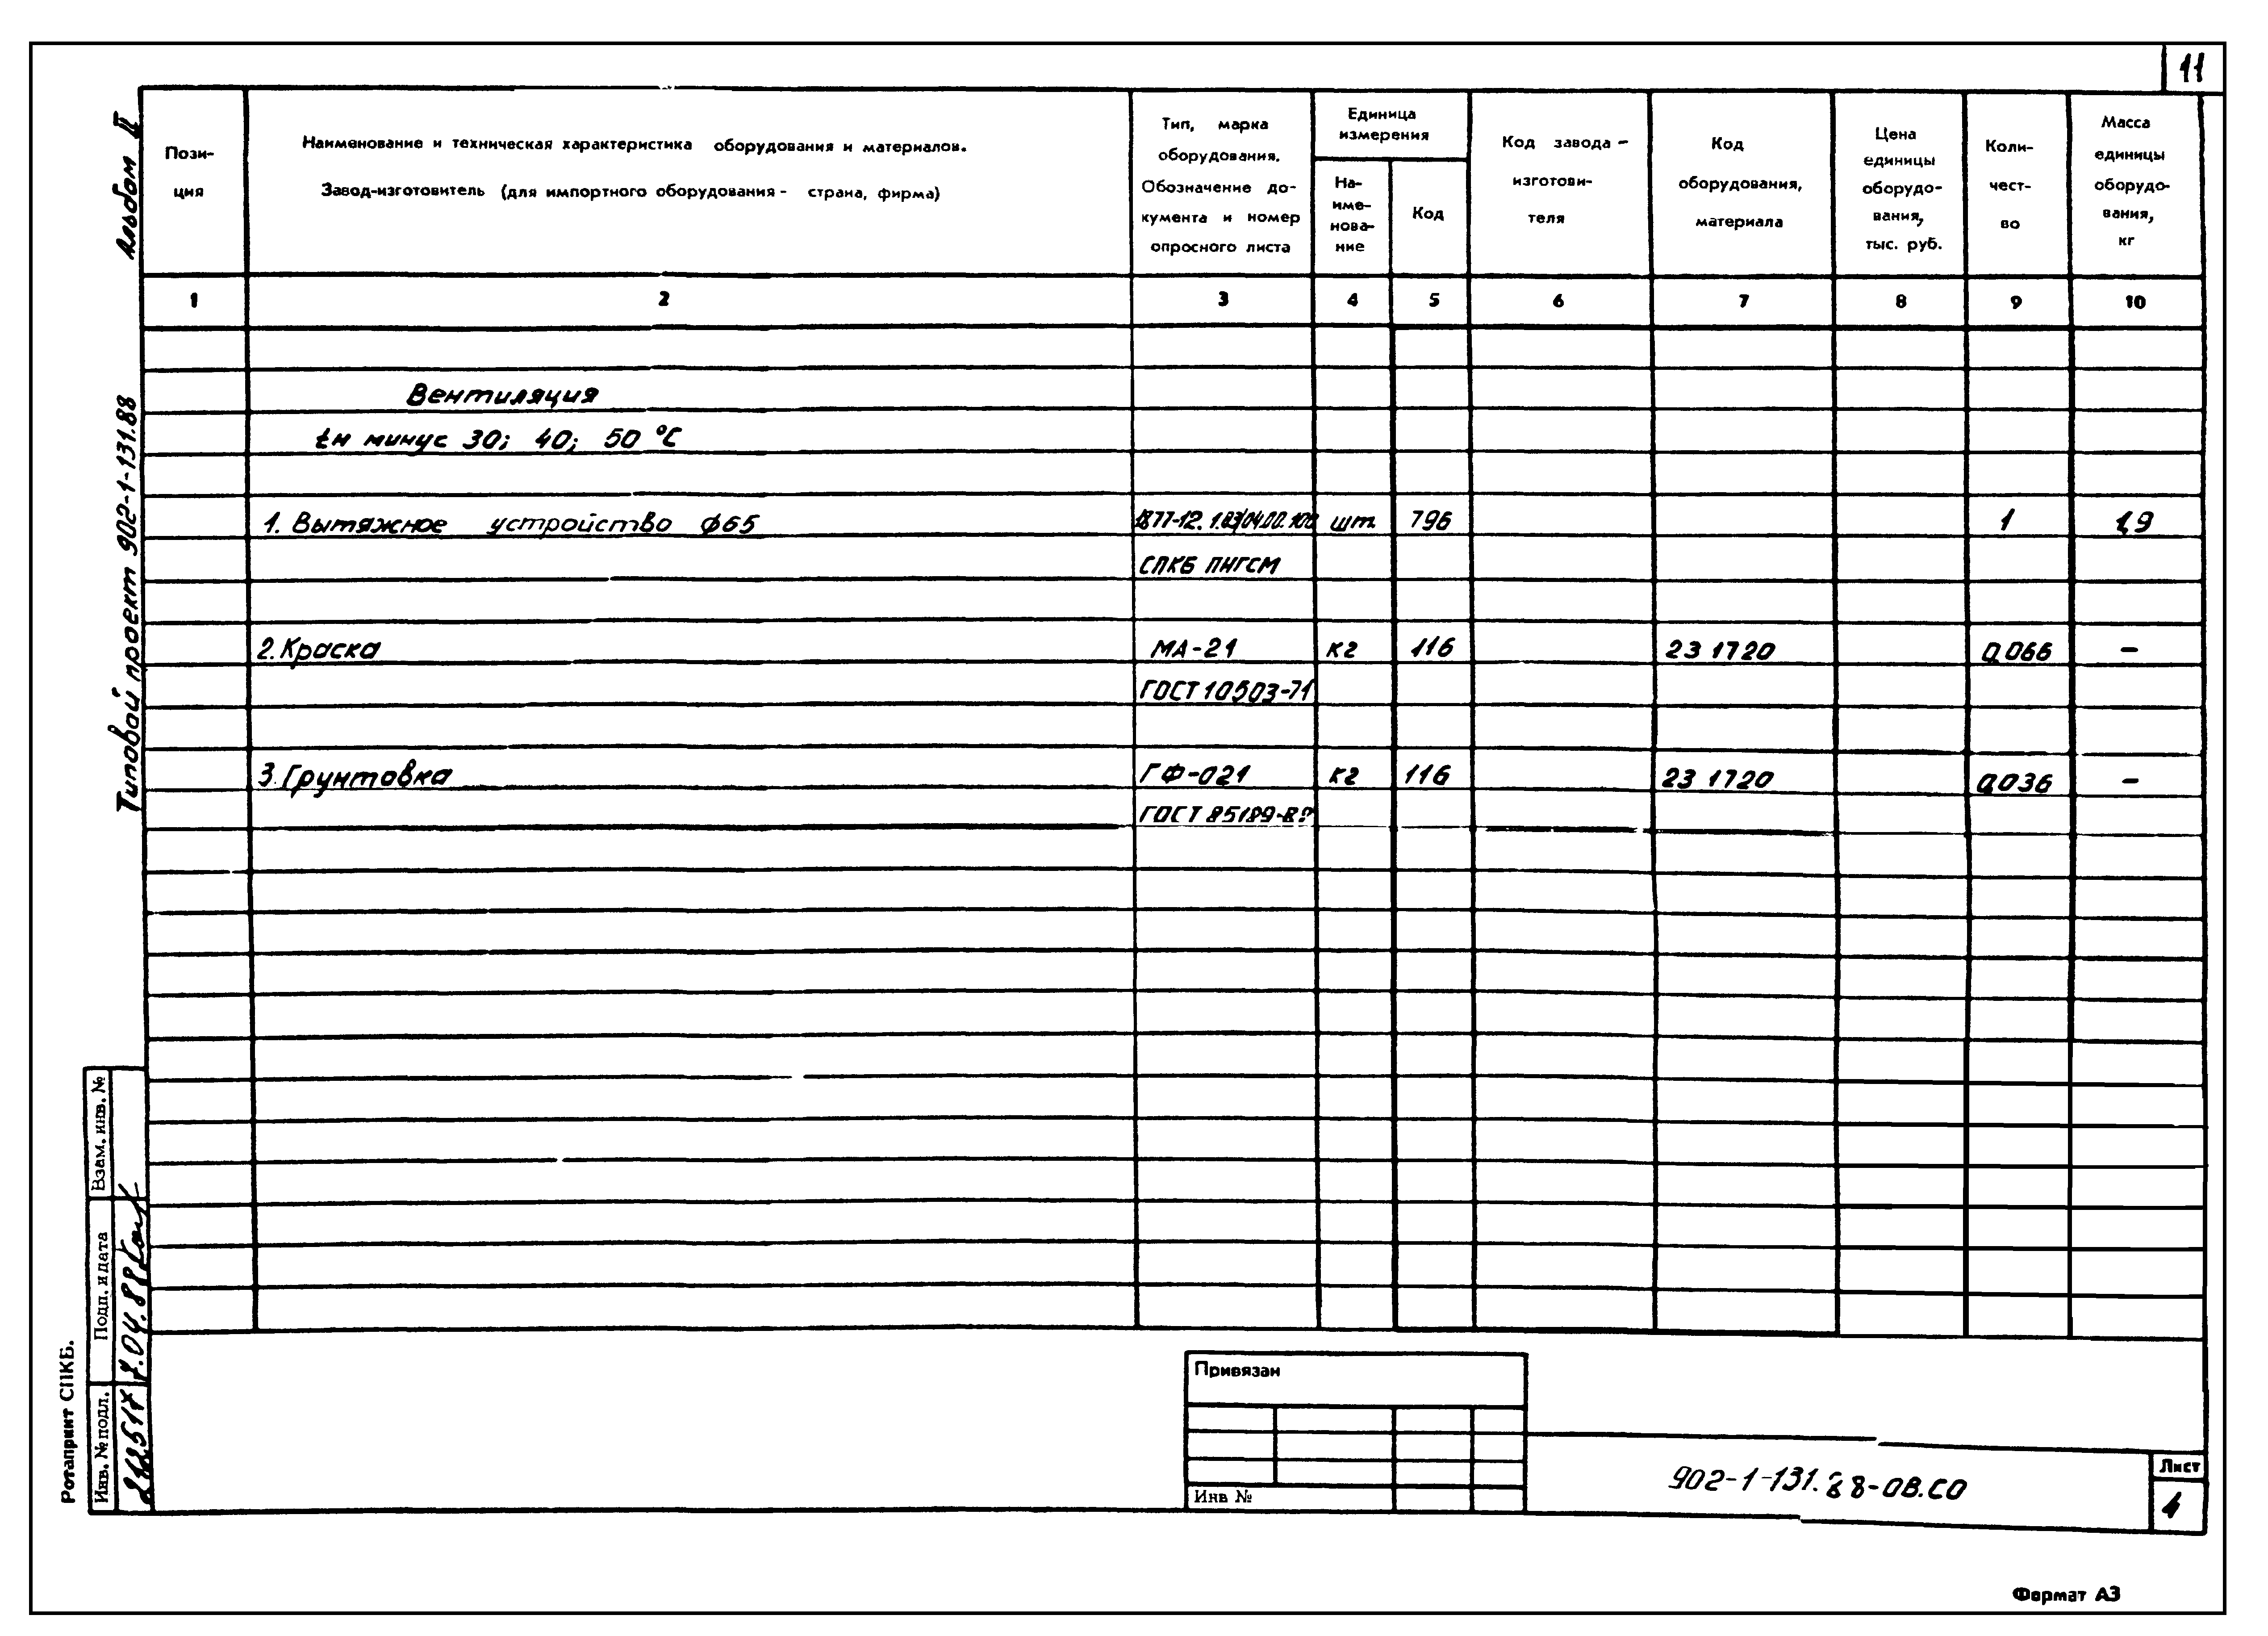 11
Альбом II
Типовой проект 902-1-131.88
Пози-
ция
Наименование и техническая характеристика оборудования и материалов.
Завод-изготовитель (для импортного оборудования - страна, фирма)
Тип, марка
оборудования.
Обозначение до-
кумента и номер
опросного листа
Единица
измерения
На-
име-
нова-
ние
Код
Код завода -
изготови-
теля
Код
оборудования,
материала
Цена
единицы
оборудо-
вания,
тыс. руб.
Коли-
чест-
во
Масса
единицы
оборудо-
вания,
кг
1 2 3 4 5 6 7 8 9 10
Вентиляция
tн минус 30; 40; 50 °С
1. Вытяжное устройство ф65 шт. 796 1 1,9
СПКБ ПНГСМ
2. Краска МА-21 кг 116 23 1720 0,066 -
ГОСТ 10503-71
3. Грунтовка ГФ-021 кг 116 23 1720 0,036 -
ГОСТ
Взам. инв. №
Подп. и дата
Инв. № подл.
Ротапринт СПКБ.
Привязан
Инв №
902-1-131.88-ОВ.СО
Лист
Формат А3